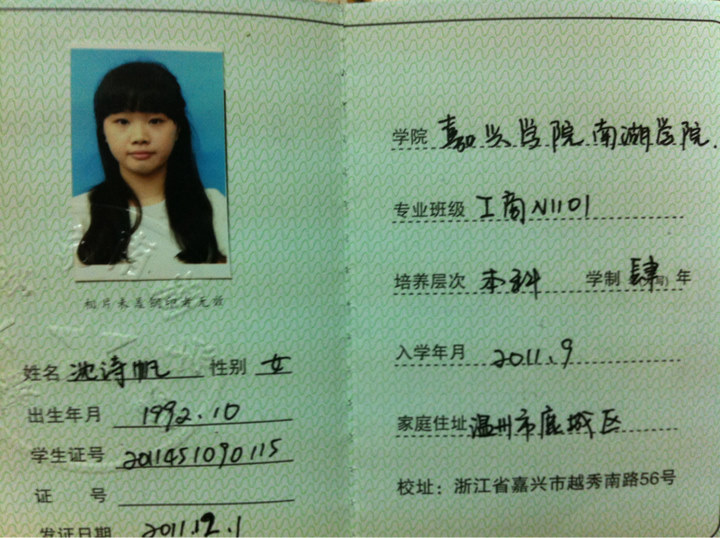 相片未盖钢印者无效
姓名 沈诗帆 性别 女
出生年月 1992.10
学生证号 2011451090115
证 号
发证日期 2011.12.1
学院 嘉兴学院南湖学院.
专业班级 工商N1101
培养层次 本科 学制 肆 年
入学年月 2011.9
家庭住址 温州市鹿城区
校址：浙江省嘉兴市越秀南路56号